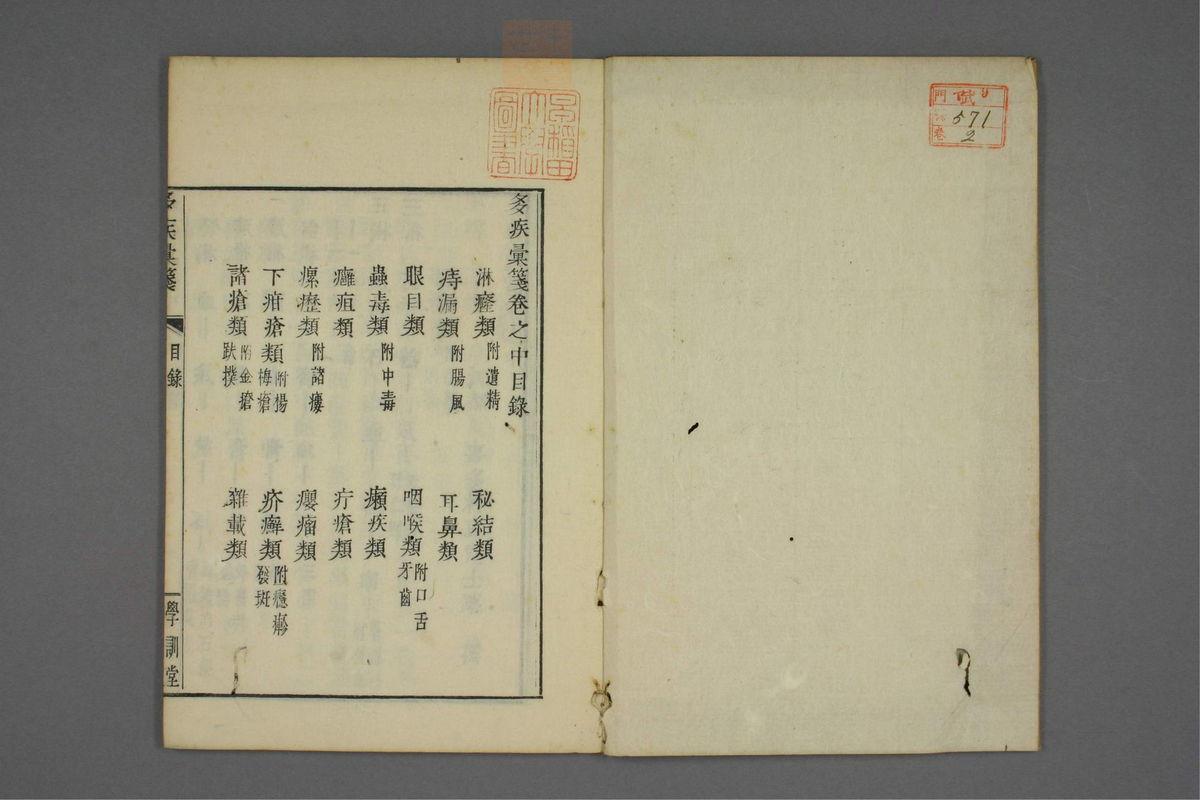 門
號 571
卷 2
早稲田
大學
圖書
疾彙箋卷之中目錄
淋癃類 附遺精 秘結類
痔漏類 附腸風 耳鼻類
眼目類 咽喉類 附口舌牙齒
蟲毒類 附中毒 癩疾類
癰疽類 疔瘡類
瘰癧類 附諸瘻 癭瘤類
下疳瘡類 附楊梅瘡 疥癬類 附癮疹發斑
諸瘡類 附金瘡跌撲 雜載類
疾彙箋
目錄
學訓堂